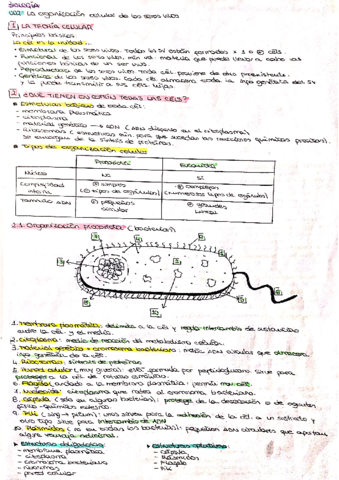 BIOLOGÍA
UD2: La organización celular de los seres vivos
1 LA TEORÍA CELULAR
Principios básicos
La cél es la unidad...
- Estructural de los seres vivos. Todos los SV están formados x 1 o + céls.
- Funcional de los seres vivos: mín. ud. materia que puede llevar a cabo las funciones básicas de un ser vivo.
- Reproductora de los seres vivos. Toda cél proviene de otra preexistente.
- Genética de los seres vivos. Cada cél almacena toda la info genética del SV y la puede transmitir a sus céls. hijas.
2 ¿QUÉ TIENEN EN COMÚN TODAS LAS CÉLS?
Estructuras básicas de cada cél:
- membrana plasmática
- citoplasma
- material genético → ADN (ADN disperso en el citoplasma)
- ribosomas
se encargan de la síntesis de proteínas.
Tipos de organización celular
Procariota Eucariota
Núcleo NO SÍ
Complejidad interna + simples + complejas
(tipos de orgánulos) (numerosos tipos de orgánulos)
Tamaño ADN + pequeños + grandes
circular lineal
2.1. Organización procariota (bacterias)
1. Membrana plasmática: delimita a la cél y regula intercambio de sustancias entre la cél y el medio.
2. Citoplasma: medio de reacción del metabolismo celular.
3. Material genético = cromosoma bacteriano: molec. ADN circular que almacena info genética de la cél.
4. Ribosomas: síntesis de proteínas.
5. Pared celular (muy gruesa): está formada por peptidoglucano. Sirve para proteger a la cél de rotura osmótica.
6. Flagelo: anclado a la membrana plasmática: permite mov. cél.
7. Nucleoide: citoplasma que rodea al cromosoma bacteriano.
8. Cápsula (solo en algunas bacterias): protege de la desecación o de agentes físico-químicos externos
9. Pili (sing → pilum): unos sirven para la adhesión de la cél a un sustrato y otro tipo sirve para intercambio de ADN
10. Plásmidos (no en todas las bacterias): pequeños ADN circulares que aportan alguna ventaja adicional.
Estructuras obligatorias
- membrana plasmática
- citoplasma
- cromosoma bacteriano
- ribosomas
- pared celular
Estructuras optativas
- Cápsula
- Plásmidos
- Flagelo
- Pili